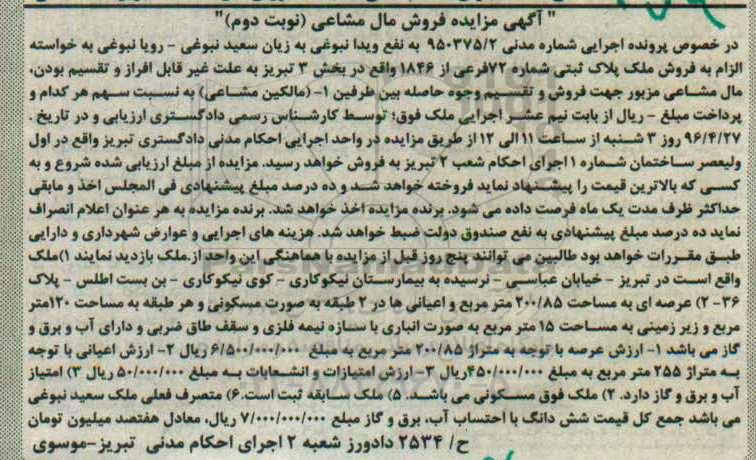 " آگهی مزایده فروش مال مشاعی (نوبت دوم)"
در خصوص پرونده اجرایی شماره مدنی ۹۵۰۳۷۵/۲ به نفع ویدا نبوغی به زیان سعید نبوغی - رویا نبوغی به خواسته
الزام به فروش ملک پلاک ثبتی شماره ۷۲فرعی از ۱۸۴۶ واقع در بخش ۳ تبریز به علت غیر قابل افراز و تقسیم بودن،
مال مشاعی مزبور جهت فروش و تقسیم وجوه حاصله بین طرفین ۱- (مالکین مشاعی) به نسبت سهم هر کدام و
پرداخت مبلغ - ریال از بابت نیم عشر اجرایی ملک فوق؛ توسط کارشناس رسمی دادگستری ارزیابی و در تاریخ .
۹۶/۴/۲۷ روز ۳ شنبه از ساعت ۱۱الی ۱۲ از طریق مزایده در واحد اجرایی احکام مدنی دادگستری تبریز واقع در اول
ولیعصر ساختمان شماره ۱اجرای احکام شعب ۲ تبریز به فروش خواهد رسید. مزایده از مبلغ ارزیابی شده شروع و به
کسی که بالاترین قیمت را پیشنهاد نماید فروخته خواهد شد و ده درصد مبلغ پیشنهادی فی المجلس اخذ و مابقی
حداکثر ظرف مدت یک ماه فرصت داده می شود. برنده مزایده اخذ خواهد شد. برنده مزایده به هر عنوان اعلام انصراف
نماید ده درصد مبلغ پیشنهادی به نفع صندوق دولت ضبط خواهد شد. هزینه های اجرایی و عوارض شهرداری و دارایی
طبق مقررات خواهد بود طالبین می توانند پنج روز قبل از مزایده با هماهنگی این واحد از.ملک بازدید نمایند ۱)ملک
واقع است در تبریز - خیابان عباسی - نرسیده به بیمارستان نیکوکاری - کوی نیکوکاری - بن بست اطلس - پلاک
۳۶- ۲) عرصه ای به مساحت ۲۰۰/۸۵ متر مربع و اعیانی ها در ۲ طبقه به صورت مسکونی و هر طبقه به مساحت ۱۲۰متر
مربع و زیر زمینی به مساحت ۱۵ متر مربع به صورت انباری با سازه نیمه فلزی و سقف طاق ضربی و دارای آب و برق و
گاز می باشد ۱- ارزش عرصه با توجه به متراژ ۲۰۰/۸۵ متر مربع به مبلغ ۶/۵۰۰/۰۰۰/۰۰۰ ریال ۲- ارزش اعیانی با توجه
به متراژ ۲۵۵ متر مربع به مبلغ ۴۵۰/۰۰۰/۰۰۰ریال ۳- ارزش امتیازات و انشعابات به مبلغ ۵۰/۰۰۰/۰۰۰ ریال ۳) امتیاز
آب و برق و گاز دارد. ۲) ملک فوق مسکونی می باشد. ۵) ملک سابقه ثبت است.۶) متصرف فعلی ملک سعید نبوغی
می باشد جمع کل قیمت شش دانگ با احتساب آب، برق و گاز مبلغ ۷/۰۰۰/۰۰۰/۰۰۰ ریال، معادل هفتصد میلیون تومان
ح/ ۲۵۳۴ دادورز شعبه ۲ اجرای احکام مدنی تبریز-موسوی